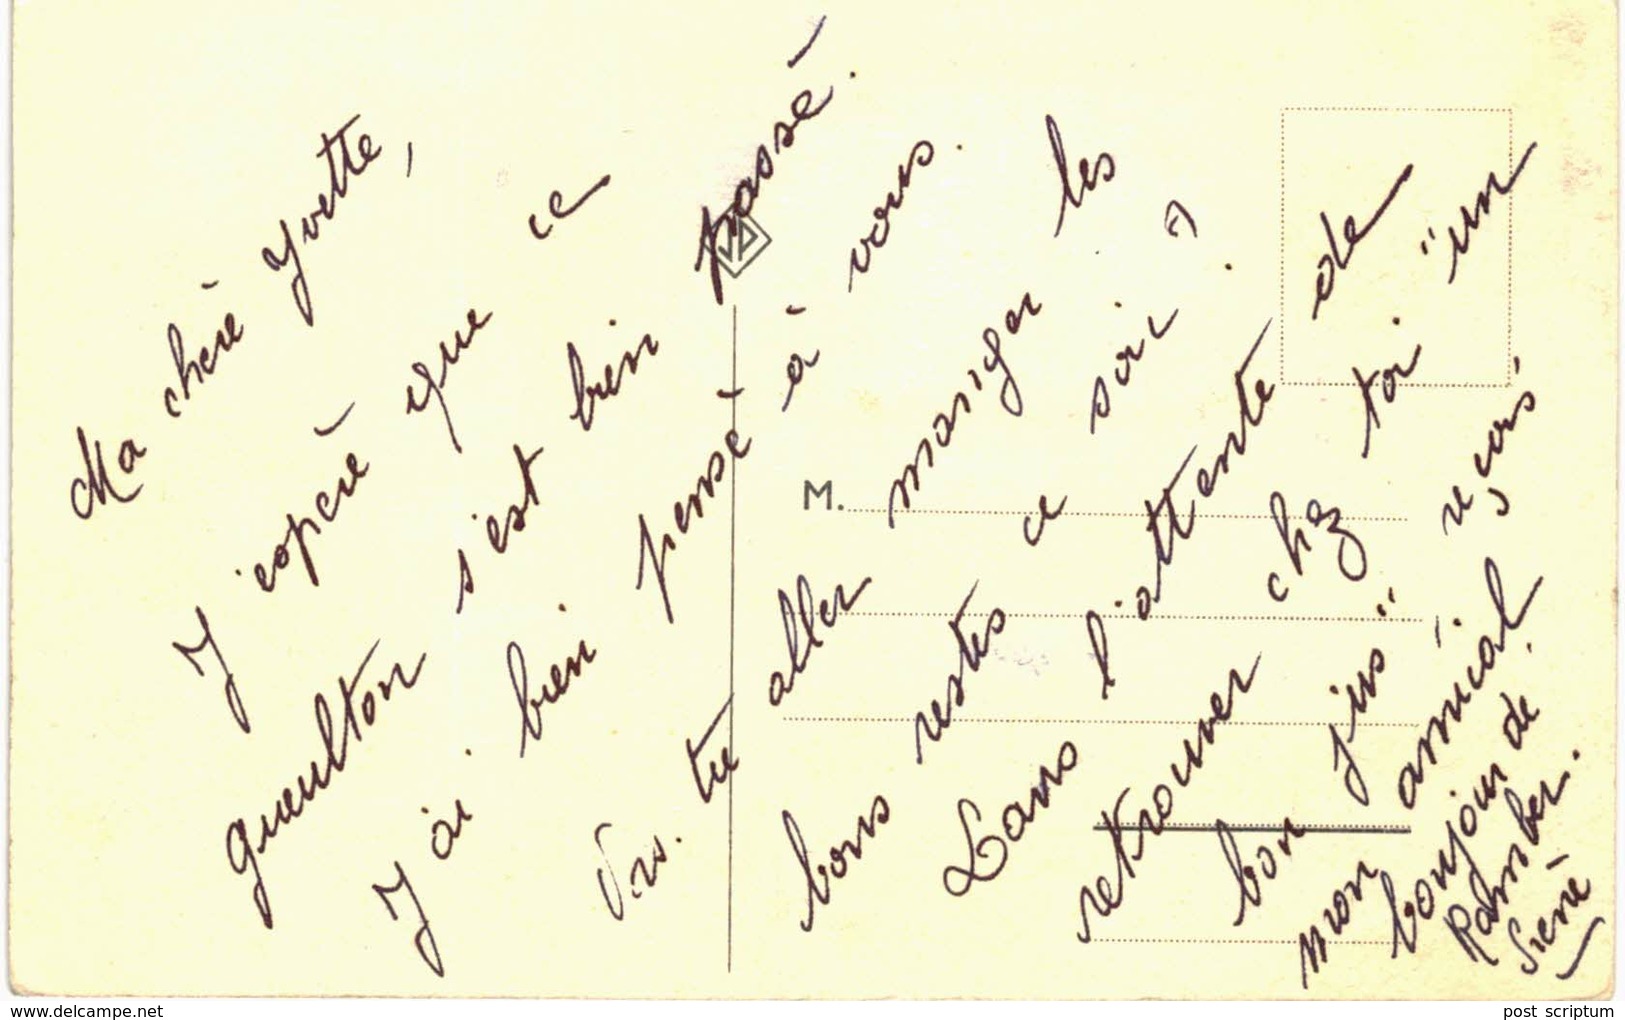 Ma chère Yvette,
J'espère que ce
gueulton s'est bien passé.
J'ai bien pensé à vous.
tu aller manger les
bons restes ce soir ?
Dans l'attente de
retrouver chez toi "un
bon jus", reçois
mon amical
bonjour de
Ramber.
VD
M.
www.delcampe.net
post scriptum